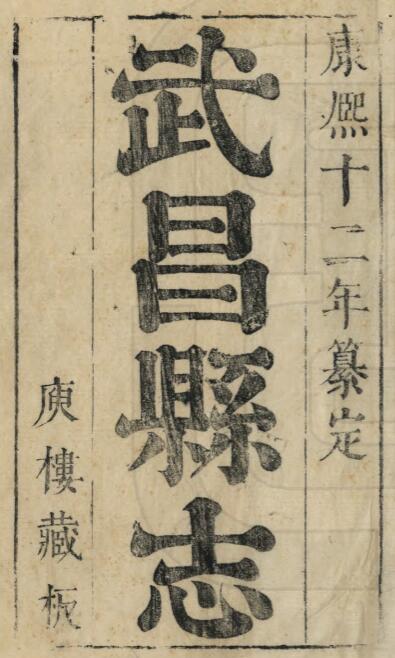 康熈十二年纂定
武昌縣志
庾樓藏板